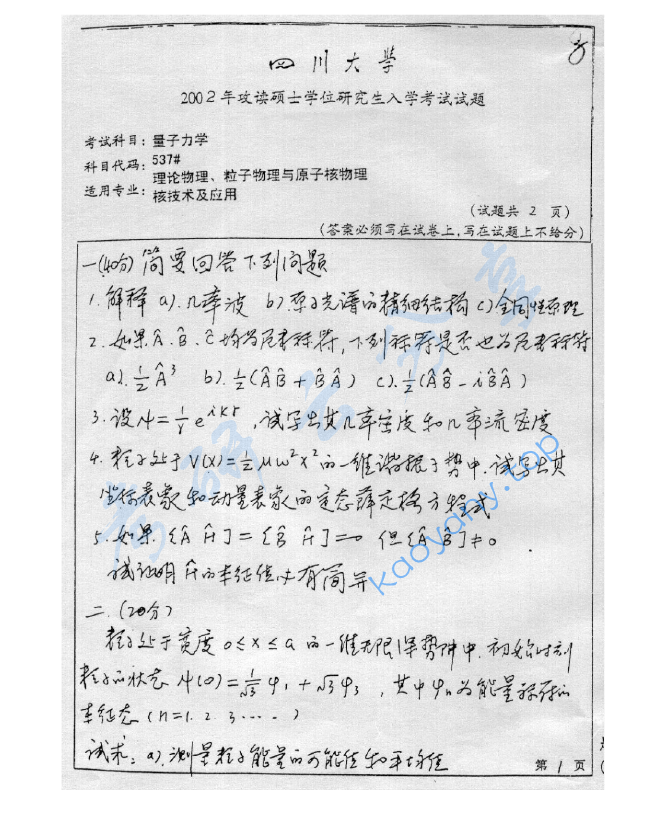 四川大学
2002年攻读硕士学位研究生入学考试试题
考试科目：量子力学
科目代码：537#
适用专业：理论物理、粒子物理与原子核物理
核技术及应用
(试题共 2 页)
(答案必须写在试卷上,写在试题上不给分)
一(40分) 简要回答下列问题
1. 解释 a). 几率波 b) 原子光谱的精细结构 c) 全同性原理
2. 如果 Â、B̂、Ĉ 均为厄米算符, 下列算符是否也为厄米算符
a). ½ Â³ b). ½(ÂB̂ + B̂Â) c). ½(ÂB̂ - iB̂Â)
3. 设 ψ = 1/r e^{ikr}, 试写出其几率密度和几率流密度
4. 粒子处于 V(x) = ½ μω²x² 的一维谐振子势中, 试写出其
坐标表象和动量表象的定态薛定格方程式
5. 如果 [Â Ĥ] = [B̂ Ĥ] = 0 但 [Â B̂] ≠ 0
试证明 Ĥ 的本征值必有简并
二. (20分)
粒子处于宽度 0≤x≤a 的一维无限深势阱中, 初始时刻
粒子的状态 ψ(0) = 1/√3 φ₁ + √3 φ₃ , 其中 φₙ 为能量算符的
本征态 (n=1. 2. 3 ·····)
试求: a). 测量粒子能量的可能值和平均值
第 1 页
考研公益
kaoyany.top